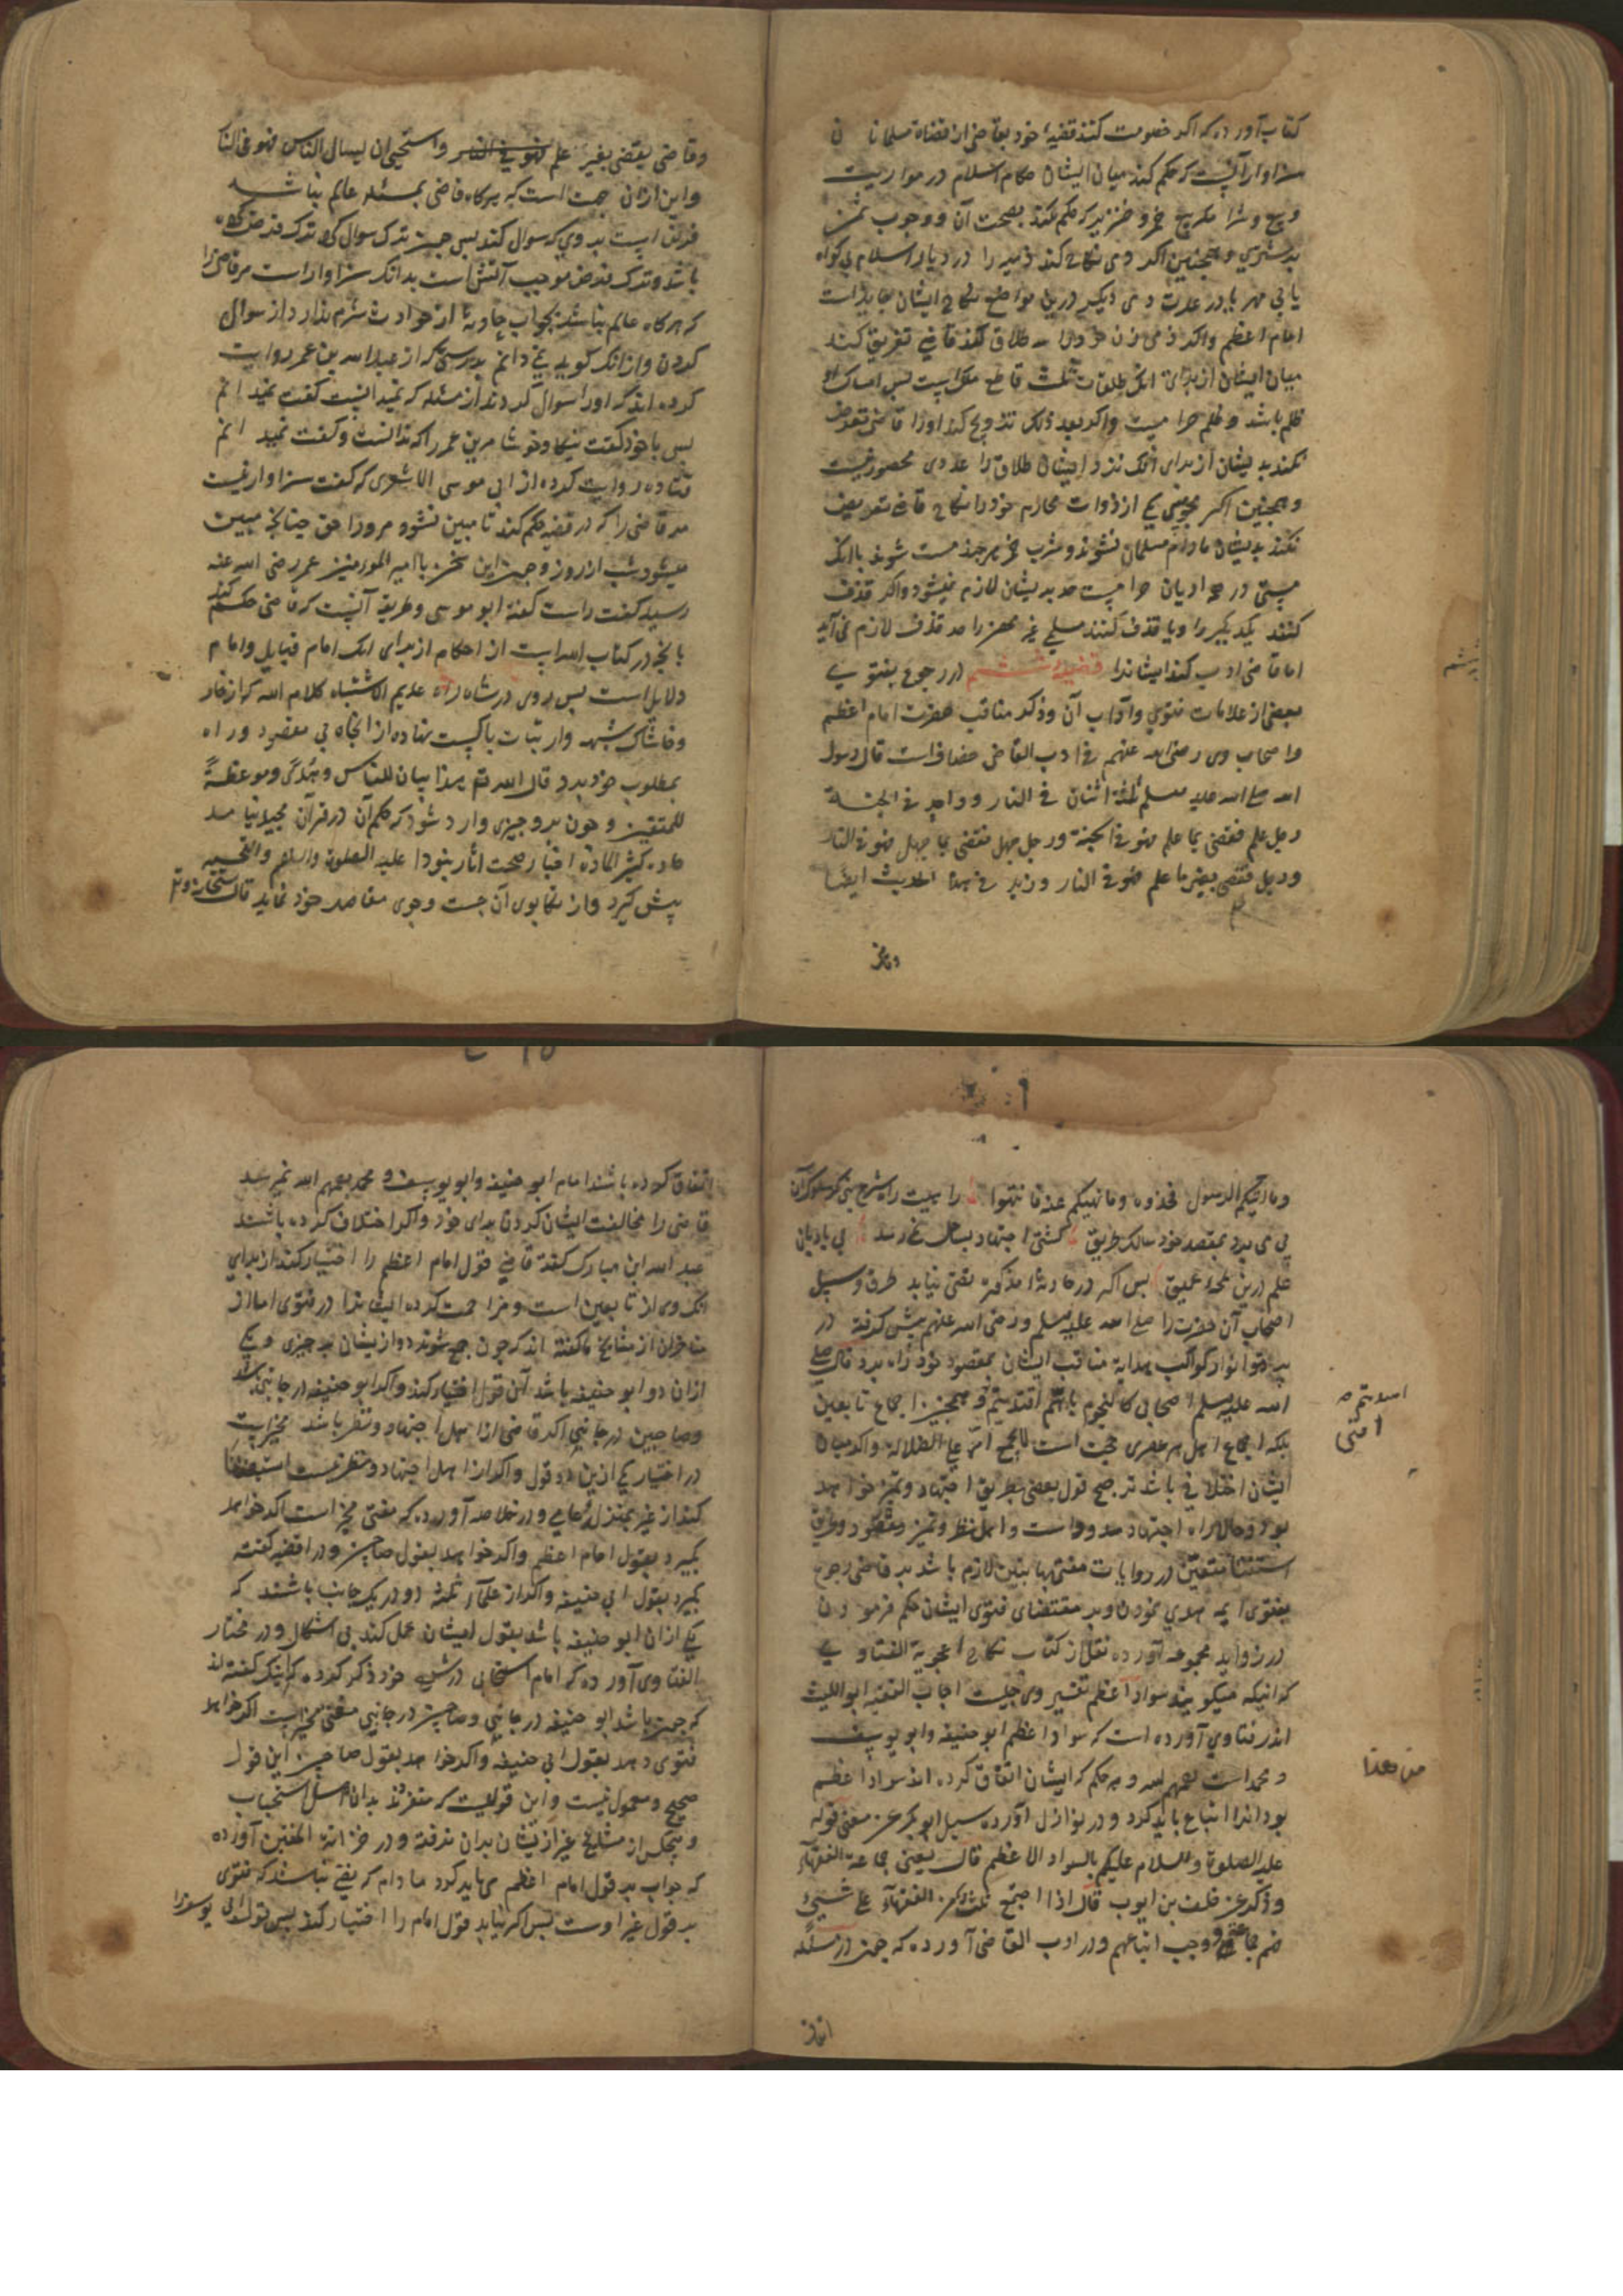 کتاب آورده که اکر خصومت کنند قضیهٔ خود بقاضی از قضاة مسلمانان
سزاوار آنست که حکم کند میان ایشان حکام اسلام در مواریث
و بیع و شرا مکر بیع خمر و خنزیر که حکم کند بصحت آن و وجوب ثمن
بر مشتری و همچنین اکر ذمی نکاح کند ذمیه را در دیار اسلام بی کواه
یا بی مهر یا در عدت ذمی دیکر درین مواضع نکاح ایشان جایز است
امام اعظم و اکر ذمی زن خود را سه طلاق کند قاضی تفریق کند
میان ایشان از برای آنک طلقات ثلث قاطع ملک است پس امساک او
ظلم باشد و ظلم حرامیست و اکر بعد ذلک تزویج کند او را قاضی تعرض
نکند بدیشان از برای آنک نزد ایشان طلاق را عددی محصور نیست
و همچنین اکر مجوسی یکی از ذوات محارم خود را نکاح قاضی تعرض
نکند بدیشان مادام مسلمان نشوند و شرب خمر هرچند مست شوند باآنک
مستی در همه ادیان حرامست حد بدیشان لازم نمیشود و اکر قذف
کنند یکدیکر را و یا قذف کنند مسلمی غیر محصن را حد قذف لازم نمی آید
اما قاضی ادب کند ایشانرا قضیهٔ ششم در رجوع بفتوی
بعضی از علامات فتوی و آداب آن و ذکر مناقب حضرت امام اعظم
و اصحاب وی رضی الله عنهم فی ادب القاضی خصاف است قال رسول
الله صلی الله علیه وسلم ثلثة اثنان فی النار وواحد فی الجنة
رجل علم فقضی بما علم فهو فی الجنة ورجل جهل فقضی بما جهل فهو فی النار
ورجل قضی بغیر ما علم فهو فی النار وزید فی هذا الحدیث ایضا
وقاضی یقضی بغیر علم فهو فی النار واستحیی ان یسال الناس فهو فی النار
و این از آن جهت است که هرکاه قاضی بمسئله عالم نباشد
فرض است بر وی که سوال کند پس چون ترک سوال کرد ترک فرض کرده
باشد و ترک فرض موجب آتش است بدانک سزاوار است مر قاضی را
که هرکاه عالم نباشد بجواب حادثهٔ از حوادث شرم ندارد از سوال
کردن و از آنک کوید نمی دانم بدرستی که از عبدالله بن عمر روایت
کرده اند که او را سوال کردند از مسئله که نمیدانست کفت نمیدانم
پس با خود کفت نیکا و خوشا مر ابن عمر را که ندانست و کفت نمیدانم
قتاده روایت کرده از ابی موسی الاشعری که کفت سزاوار نیست
مر قاضی را که در قضیه حکم کند تا مبین نشود مر او را حق چنانچه مبین
میشود شب از روز و چون این سخن با امیر المومنین عمر رضی الله عنه
رسید کفت راست کفته ابو موسی و طریقه آنست که قاضی حکم کند
بآنچه در کتاب الله است از احکام از برای آنک امام
دلایل است پس بروی در شاه راه عدیم الاشتباه کلام الله که از خار
و خاشاک شبهه و ارتیاب پاکست نهاده از آنجا پی بمقصود و راه
بمطلوب خود برد قال الله تع هذا بیان للناس وهدی وموعظة
للمتقین و چون بر وی چیزی وارد شود که حکم آن در قرآن مجید نیابد
جادهٔ کثیر المادة اخبار صحت آثار نبوی را علیه الصلوة والسلام والتحیة
پیش کیرد و از تکاپوی آن جست و جوی مقاصد خود نماید قال سبحانه وتع
وما اتیکم الرسول فخذوه وما نهیکم عنه فانتهوا راهیست راه شرع نبی کز سلوک آن
پی می برد بمقصد خود سالک طریق کشتی اجتهاد بساحل نمی رسد بی بادبان
علم درین لجهٔ عمیق پس اکر در حادثهٔ مذکوره نصی نیابد طرق و سبیل
اصحاب آن حضرت را صلی الله علیه وسلم و رضی الله عنهم پیش کرفته در
پرتو انوار کواکب هدایه مناقب ایشان بمقصود خود راه برد قال صلی
الله علیه وسلم اصحابی کالنجوم بایهم اقتدیتم و همچنین اجماع تابعین
بلکه اجماع اهل هر عصری حجت است لایجمع امتی علی الضلالة و اکر میان
ایشان اختلافی باشد ترجیح قول بعضی بطریق اجتهاد و تمیز خواهد
بود و حالا راه اجتهاد مسدود است و اهل نظر و تمیز مفقود و طرق
استفتا متعین در روایات مفتی بها بنابرین لازم باشد بر قاضی رجوع
بفتوی ایمه هدی نمودن و بر مقتضای فتوی ایشان حکم فرمودن
در زواید مجموعه آورده نقل از کتاب نکاح اعجوبة الفتاوی
که آنیکه میکویند سواد اعظم تفسیر وی چیست اجاب الفقیه ابواللیث
اندر فتاوی آورده است که سواد اعظم ابو حنیفه و ابو یوسف
و محمد است رحمهم الله و هر حکم که ایشان اتفاق کرده اند سواد اعظم
بود آنرا اتباع باید کرد و در نوازل آورده سیل ابوبکر عن معنی قوله
علیه الصلوة والسلام علیکم بالسواد الاعظم قال یعنی جماعة الفقهاء
وذکر عن خلف بن ایوب قال اذا اجتمع ثلثة من الفقهاء علی شیء
فهم جماعة ووجب اتباعهم و در ادب القاضی آورده که چون در مسئله
اتفاق کرده باشند امام ابو حنیفه و ابو یوسف و محمد رحمهم الله نمی رسد
قاضی را مخالفت ایشان کردن برای خود و اکر اختلاف کرده باشند
عبد الله ابن مبارک کفته قاضی قول امام اعظم را اختیار کند از برای
آنک وی از تابعین است و مزاحمت کرده ایشانرا در فتوی اما از
متاخران از مشایخ ما کفته اند که چون جمع شوند دو از ایشان بر چیزی و یکی
ازان دو ابو حنیفه باشد آن قول اختیار کند و اکر ابو حنیفه در جانبی باشد
و صاحبین در جانبی اکر قاضی از اهل اجتهاد و نظر باشد مخیر است
در اختیار یکی ازین دو قول و اکر از اهل اجتهاد و نظر نیست استفتا
کند از غیر بمنزل عامی و در خلاصه آورده که مفتی مخیر است اکر خواهد
بکیرد بقول امام اعظم و اکر خواهد بقول صاحبین و در اقضیه کفته
بکیرد بقول ابی حنیفه و اکر از علماء ثلثه دو در یک جانب باشند که
یکی ازان ابو حنیفه باشد بقول ایشان عمل کند بی اشکال و در مختار
الفتاوی آورده که امام اسبیجابی در شرح خود ذکر کرده که اینک کفته اند
که چون باشد ابو حنیفه در جانبی و صاحبین در جانبی مفتی مخیر است اکر خواهد
فتوی دهد بقول ابی حنیفه و اکر خواهد بقول صاحبین این قول
صحیح و معمول نیست و این قولیست که متفرد بدان اهل اسبیجاب
و هیچکس از مشایخ غیر ازیشان بدان نرفته و در خزانة المفتین آورده
که جواب بر قول امام اعظم می باید کرد مادام که یقین نباشد که فتوی
بر قول غیر اوست پس اکر نیابد قول امام را اختیار کند پس قول ابی یوسف را